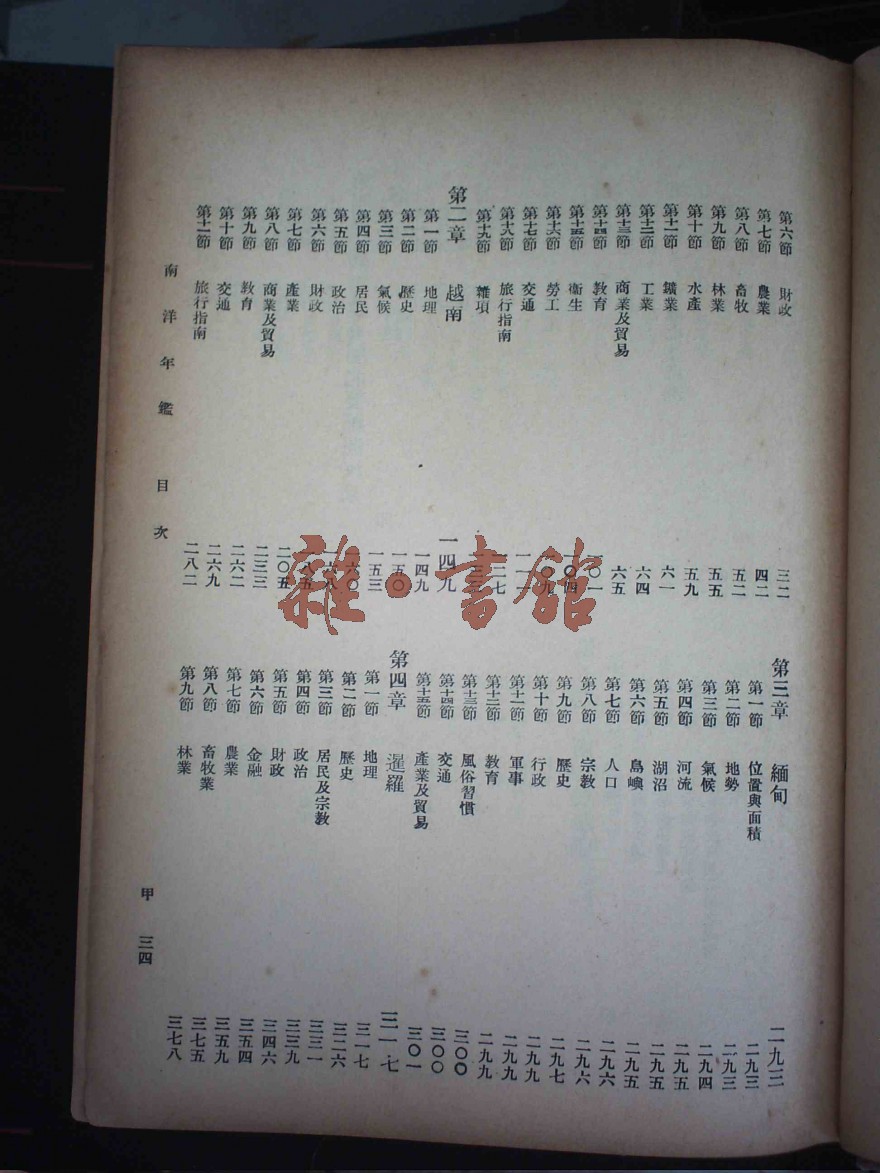 第六節 財政 三二
第七節 農業 四二
第八節 畜牧 五二
第九節 林業 五五
第十節 水產 五九
第十一節 鑛業 六一
第十二節 工業 六四
第十三節 商業及貿易 六五
第十四節 教育 一〇一
第十五節 衞生 一〇四
第十六節 勞工 一〇九
第十七節 交通 一一一
第十八節 旅行指南
第十九節 雜項
第二章 越南 一四九
第一節 地理 一四九
第二節 歷史 一五〇
第三節 氣候 一五三
第四節 居民 一六〇
第五節 政治 一六八
第六節 財政 一八五
第七節 產業 二〇五
第八節 商業及貿易 二三三
第九節 教育 二六二
第十節 交通 二六九
第十一節 旅行指南 二八二
第三章 緬甸 二九三
第一節 位置與面積 二九三
第二節 地勢 二九三
第三節 氣候 二九四
第四節 河流 二九五
第五節 湖沼 二九五
第六節 島嶼 二九五
第七節 人口 二九六
第八節 宗教 二九六
第九節 歷史 二九七
第十節 行政 二九九
第十一節 軍事 二九九
第十二節 教育 二九九
第十三節 風俗習慣 三〇〇
第十四節 交通 三〇〇
第十五節 產業及貿易 三〇一
第四章 暹羅 三一七
第一節 地理 三一七
第二節 歷史 三二六
第三節 居民及宗教 三三一
第四節 政治 三三九
第五節 財政 三四六
第六節 金融 三五四
第七節 農業 三五九
第八節 畜牧業 三七五
第九節 林業 三七八
南洋年鑑 目次
甲 三四
雜書館